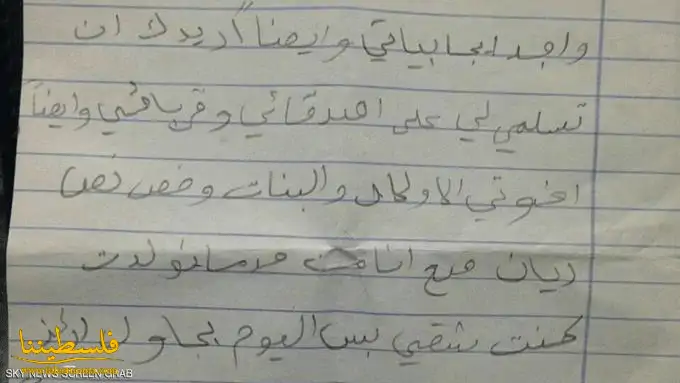 واجد ايجابياتي وايضاً اريدك ان
تسلمي لي على اصدقائي وقرباتي وايضاً
اخوتي الاولاد والبنات وخص نص
ريان مع انا من
كنت شقي بس اليوم بحاول
فلسطيننا
SKY NEWS SCREEN GRAB